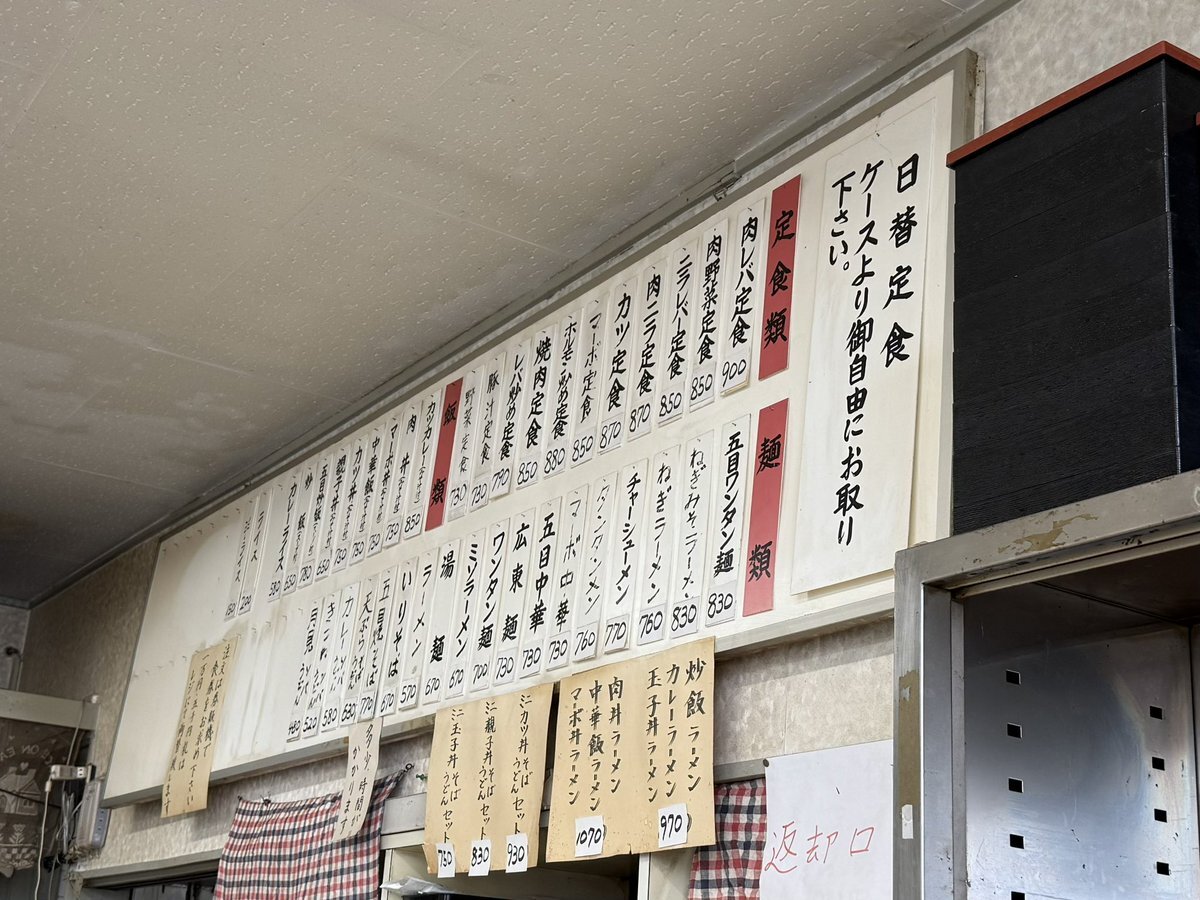 日替定食
ケースより御自由にお取り
下さい。
定食類
肉レバ定食 900
肉野菜定食 850
ニラレバー定食 850
肉ニラ定食 870
カツ定食 870
マーボ定食 850
ホルモン炒め定食 880
焼肉定食 850
レバ炒め定食 790
豚汁定食 730
野菜定食 730
飯類
カツカレー 850
肉丼 750
マーボ丼 750
中華飯 750
カツ丼 750
親子丼 730
五目炒飯 650
炒飯 780
カレーライス 650
ライス 200
麺類
五目ワンタン麺 830
ねぎみそラーメン 830
ねぎラーメン 760
チャーシューメン 770
タンタンメン 760
マーボ中華 730
五目中華 730
広東麺 730
ワンタン麺 700
ミソラーメン 670
湯麺 670
ラーメン 570
いりそば 670
五目焼そば 770
天ぷらそば 630
カレー 580
きつね 520
月見 480
炒飯ラーメン
カレーラーメン
玉子丼ラーメン
970
肉丼ラーメン
中華飯ラーメン
マーボ丼ラーメン
1070
ミニカツ丼そばうどんセット 930
ミニ親子丼そばうどんセット 830
ミニ玉子丼そばうどんセット 730
多少時間が
かかります
注文は券販機で
食券をお求め下さい
返却口